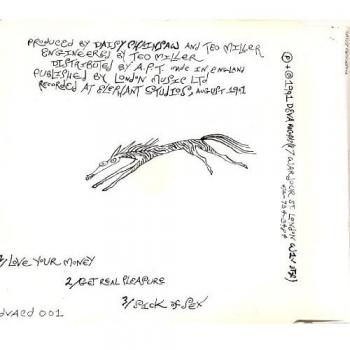 PRODUCED BY DAISY CHAINSAW AND TEO MILLER
ENGINEERED BY TEO MILLER
DISTRIBUTED BY A.P.T MADE IN ENGLAND
PUBLISHED BY LONDON MUSIC LTD
RECORDED AT ELEPHANT STUDIOS, AUGUST 1991
℗ + © 1991 DEVA WARDOUR ST. LONDON W1V
1/LOVE YOUR MONEY
2/GET REAL PLEASURE
3/SICK OF SEX
dvacd 001